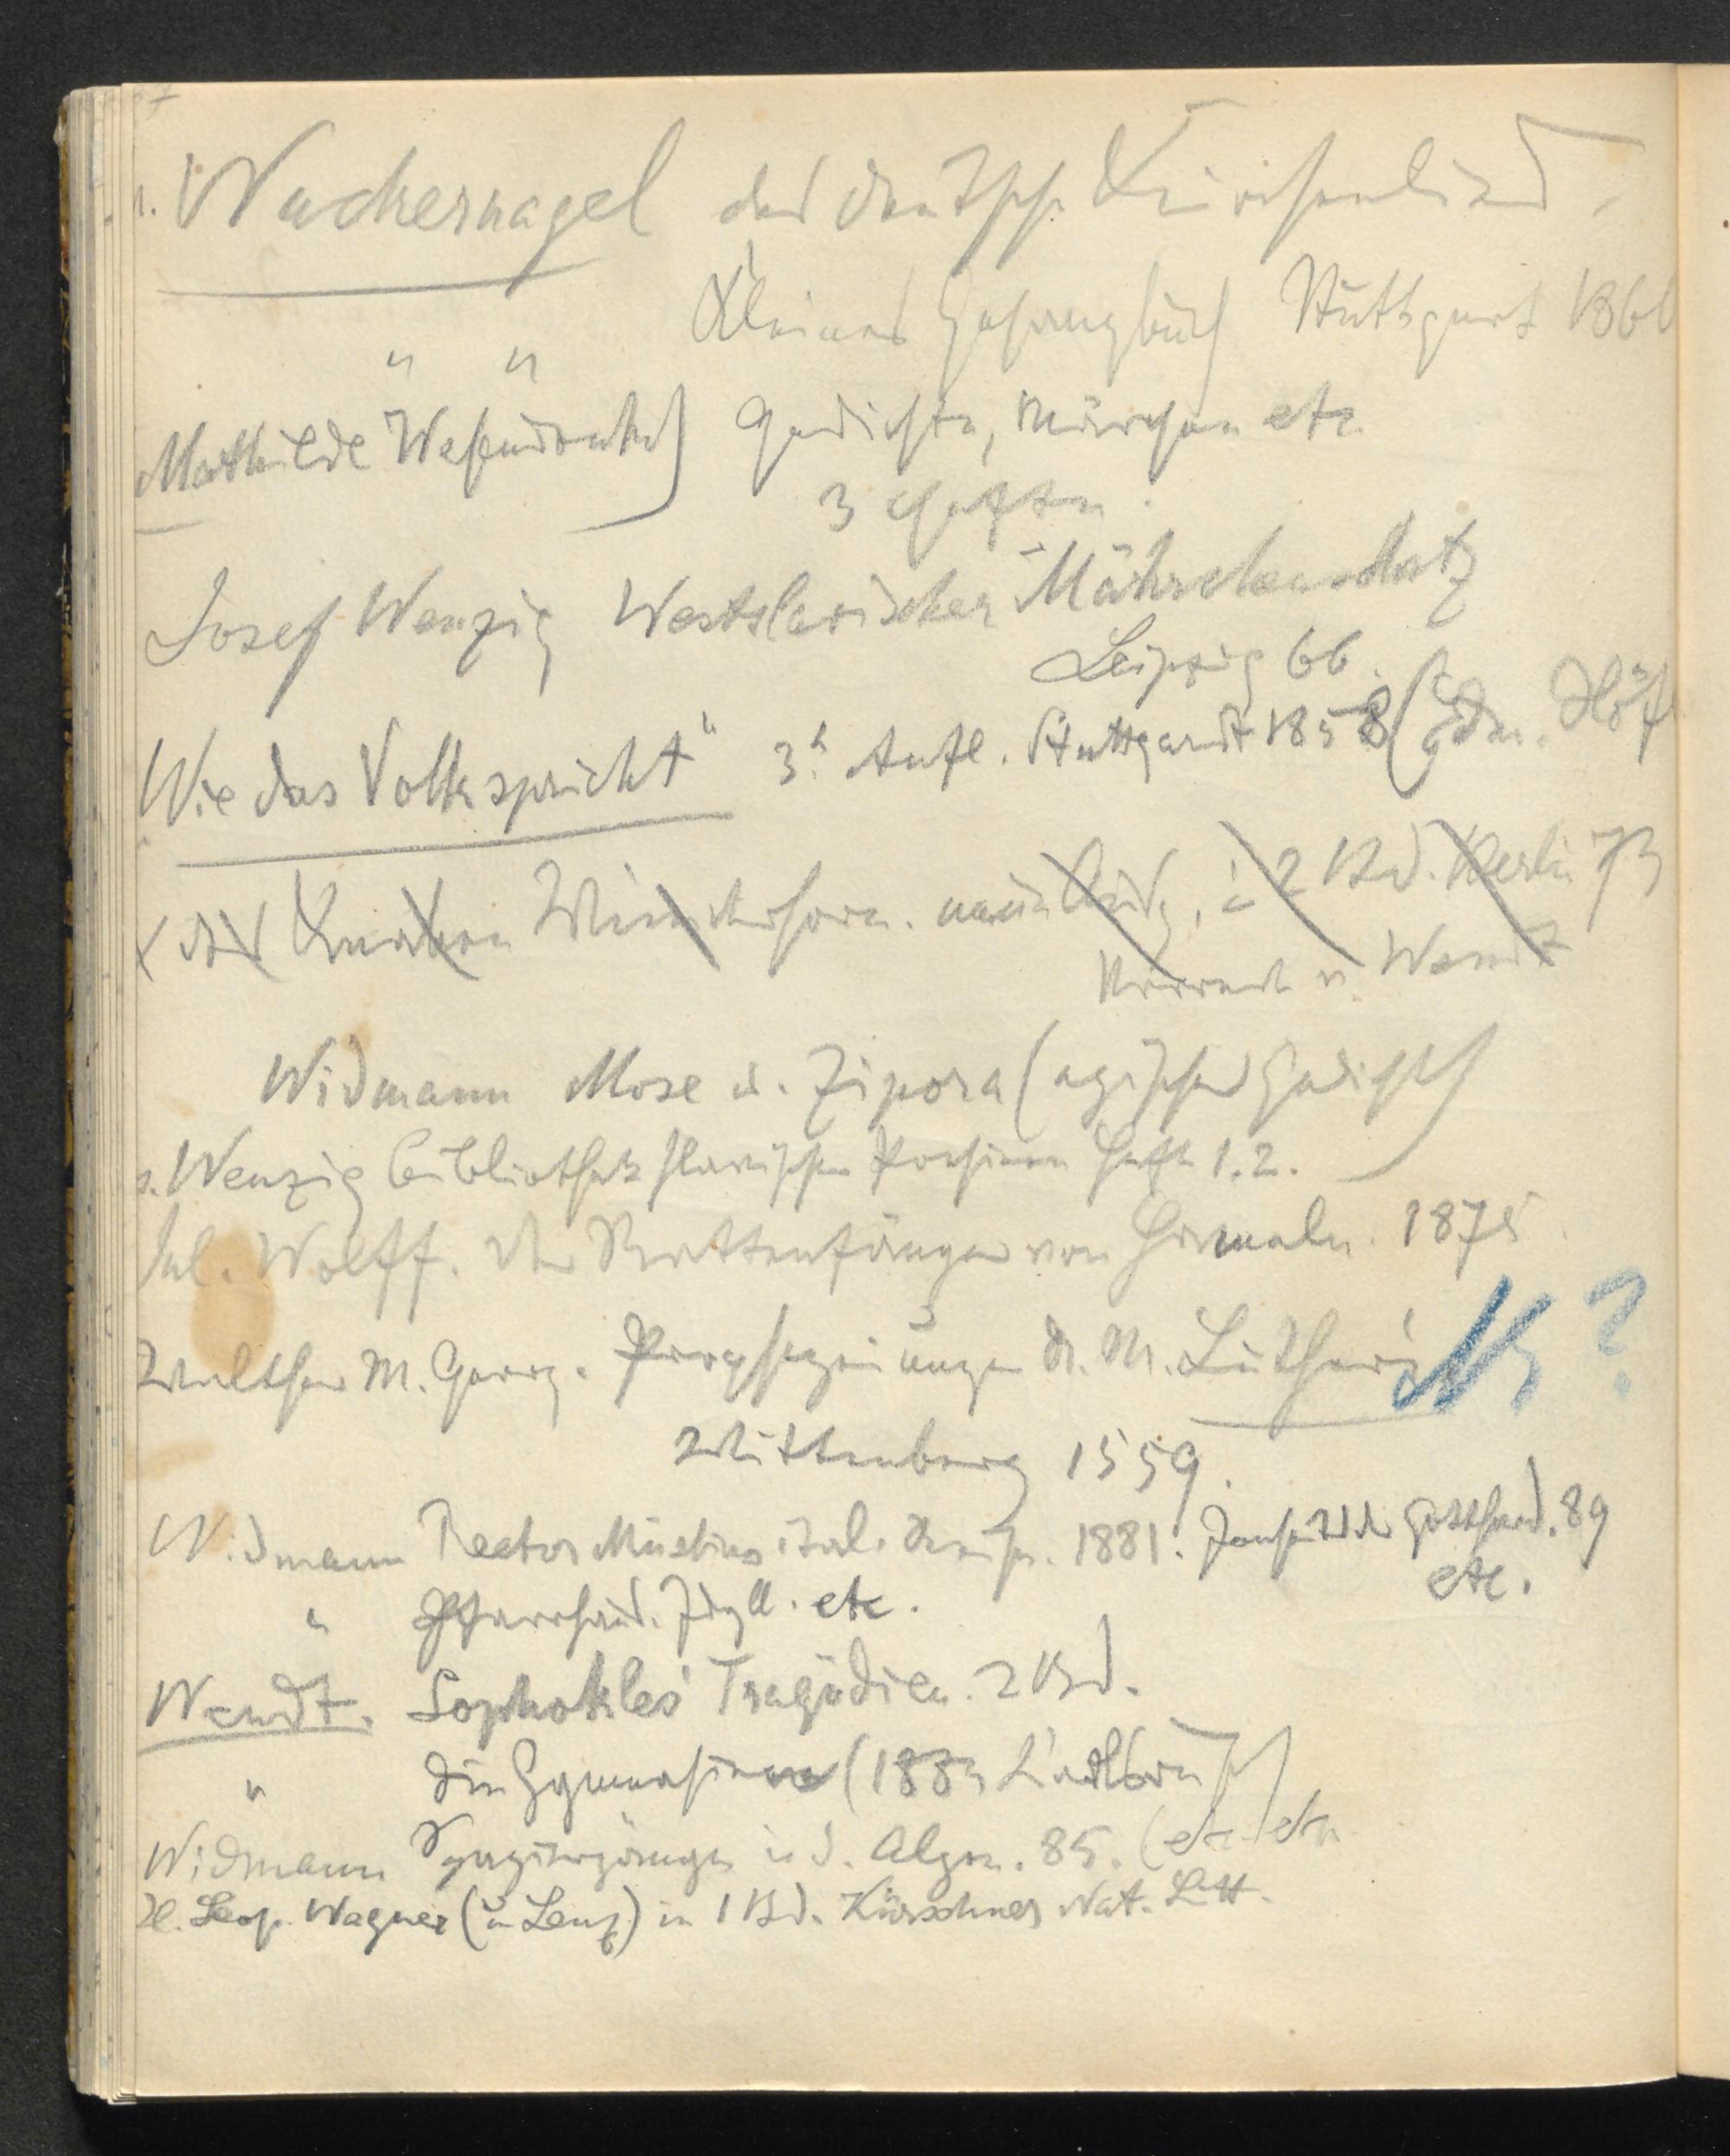 Wackernagel das deutsche Kirchenlied.
" " Kleines Gesangbuch Stuttgart 1860
Mathilde Wesendonk) Gedichte, Märchen etc
3 Hefte.
Josef Wenzig Westslavischer Mährchenschatz
Leipzig 66.
Wie das Volk spricht" 3. Aufl. Stuttgardt 1858 (Edm. Höf
x des Knaben Wunderhorn. neue Ausg. in 2 Bd. Berlin 73
u. Wendt
Widmann Mose u. Zipora (episches Gedicht)
Wenzig Bibliothek slavischer Poesien Heft 1. 2.
Jul. Wolff. Der Rattenfänger von Hameln. 1875.
Walther M. Georg. Prophezeiungen Dr. M. Luther's ?
Wittenberg 1559.
Widmann Rector Müslins ital. Reise. 1881. Jenseits des Gotthard. 89
etc.
" Pfarrhaus. Idyll. etc.
Wendt. Sophokles' Tragödien. 2 Bd.
" Die Gymnasien (1883
Widmann Spaziergänge in d. Alpen. 85. (etc etc
H. Leop. Wagner (u Lenz) in 1 Bd. Kürschners Nat. Litt.